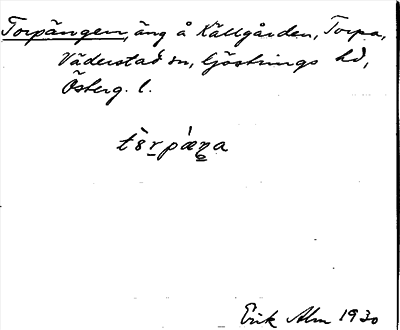 Torpängen, äng å Källgården, Torpa,
Väderstad sn, Göstrings hd,
Österg. l.
Erik Alm 1930